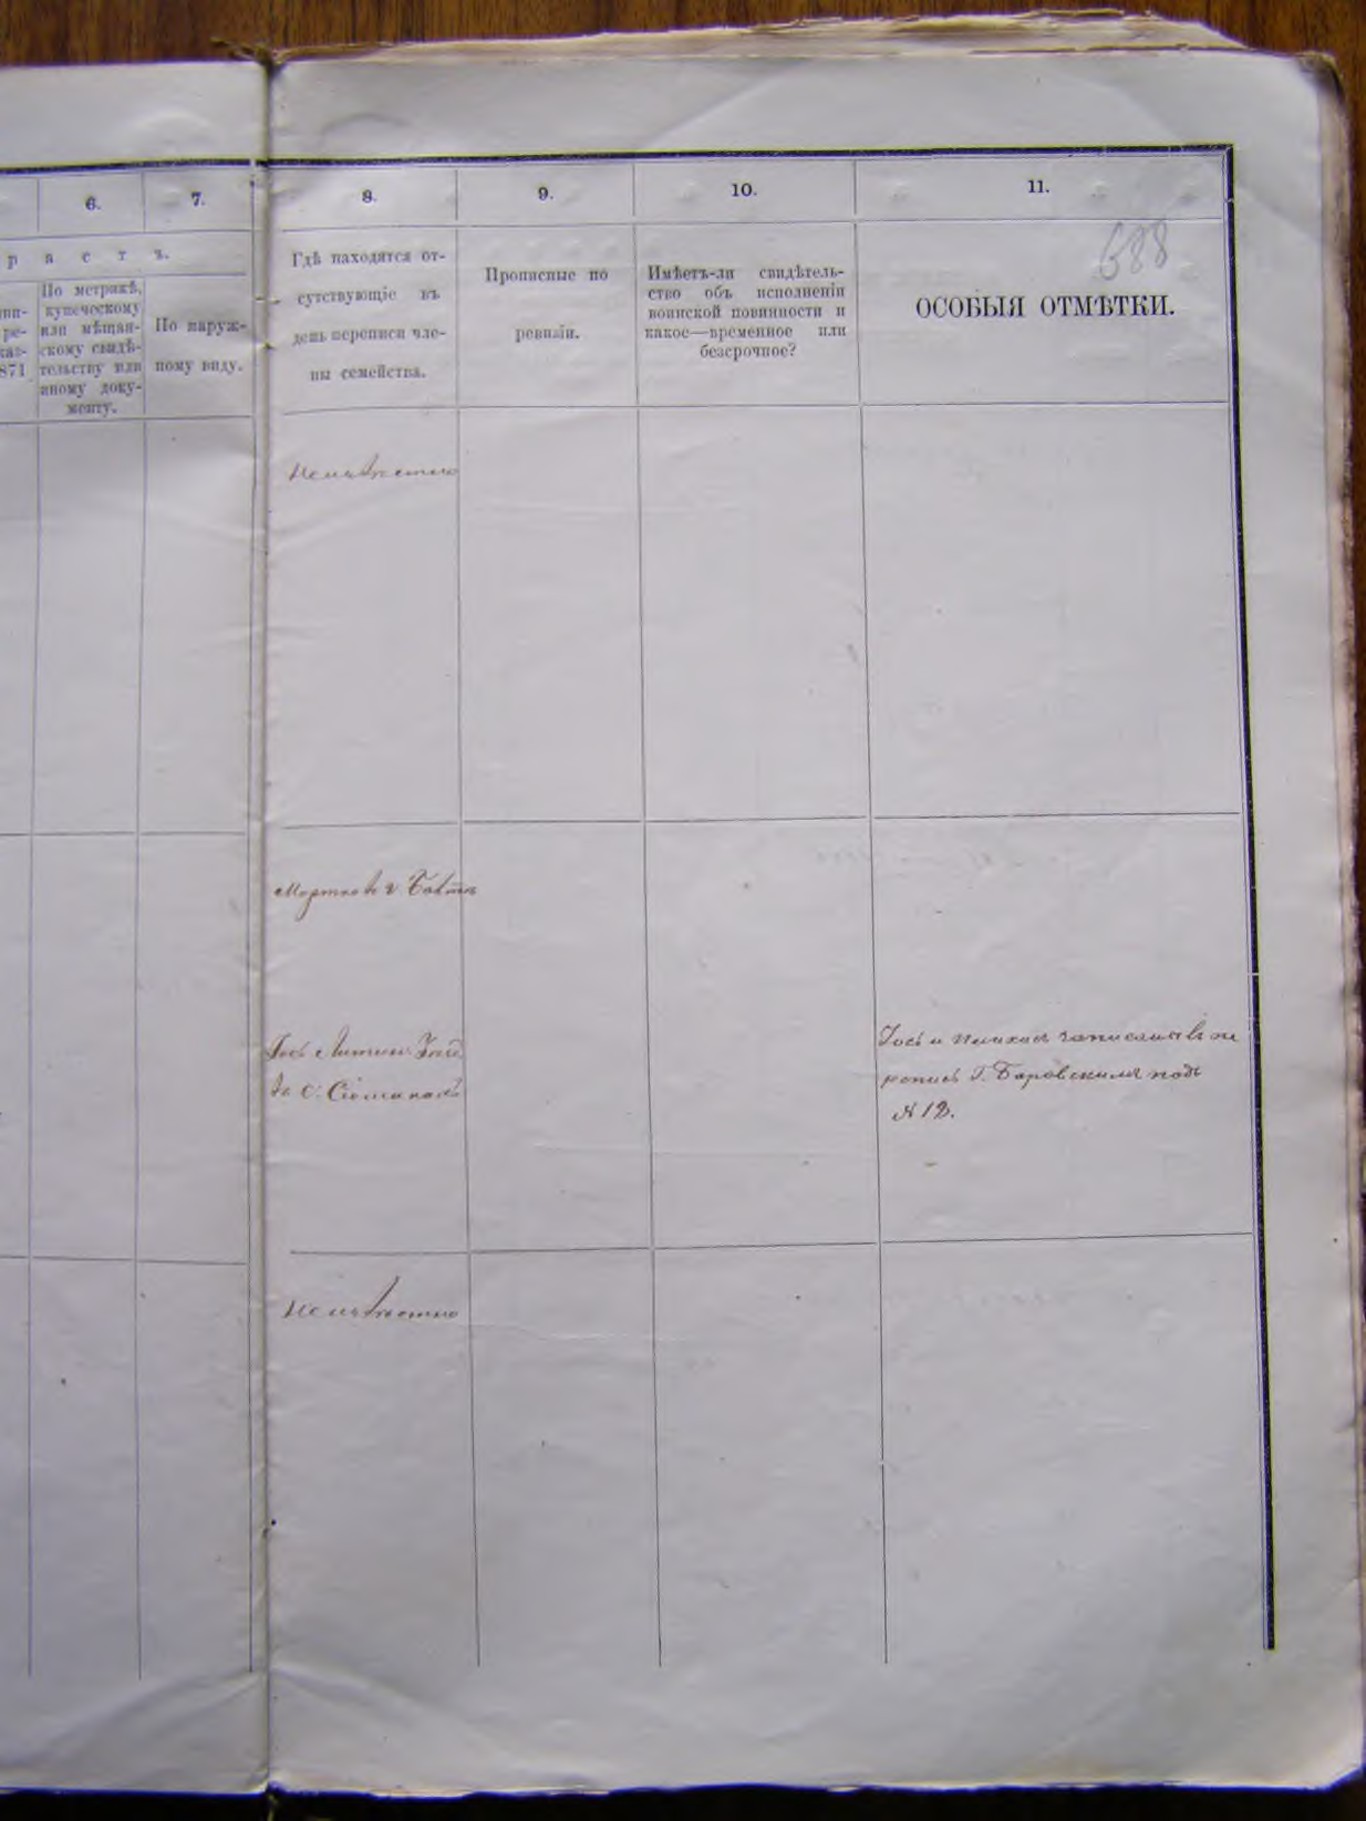 6.
7.
8.
9.
10.
11.
688
р а с т ъ.
871
По метрикѣ,
купеческому
или мѣщан-
скому свидѣ-
тельству или
иному доку-
менту.
По наруж-
ному виду.
Гдѣ находятся от-
сутствующіе въ
день переписи чле-
ны семейства.
Прописные по
ревизіи.
Имѣетъ-ли свидѣтель-
ство объ исполненіи
воинской повинности и
какое—временное или
безсрочное?
ОСОБЫЯ ОТМѢТКИ.
Неизвѣстно
Іось
въ с.
Іось и записаны въ пе
репись Г. Баровскимъ подъ
№ 12.
Неизвѣстно